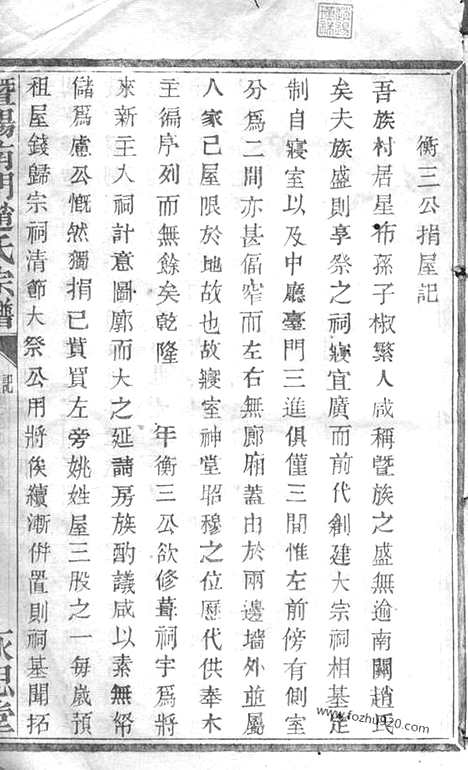 衡三公捐屋記
吾族村居星布孫子椒繁人咸稱暨族之盛無逾南闗趙氏
矣夫族盛則享祭之祠寢宜廣而前代創建大宗祠相基定
制自寢室以及中廳臺門三進俱僅三間惟左前傍有側室
分爲二間亦甚偪窄而左右無廊廂蓋由於兩邊墻外並屬
人家己屋限於地故也故寢室神堂昭穆之位歷代供奉木
主編序列而無餘矣乾隆　　年衡三公欲修葺祠宇爲將
來新主入祠計意圖廓而大之延請房族酌議咸以素無帑
儲爲慮公慨然獨捐已貲買左旁姚姓屋三股之一每歲預
祖屋錢歸宗祠清節大祭公用將俟續漸併置則祠基開拓
暨陽南門趙氏宗譜
記
永思堂
www.fozhu920.com